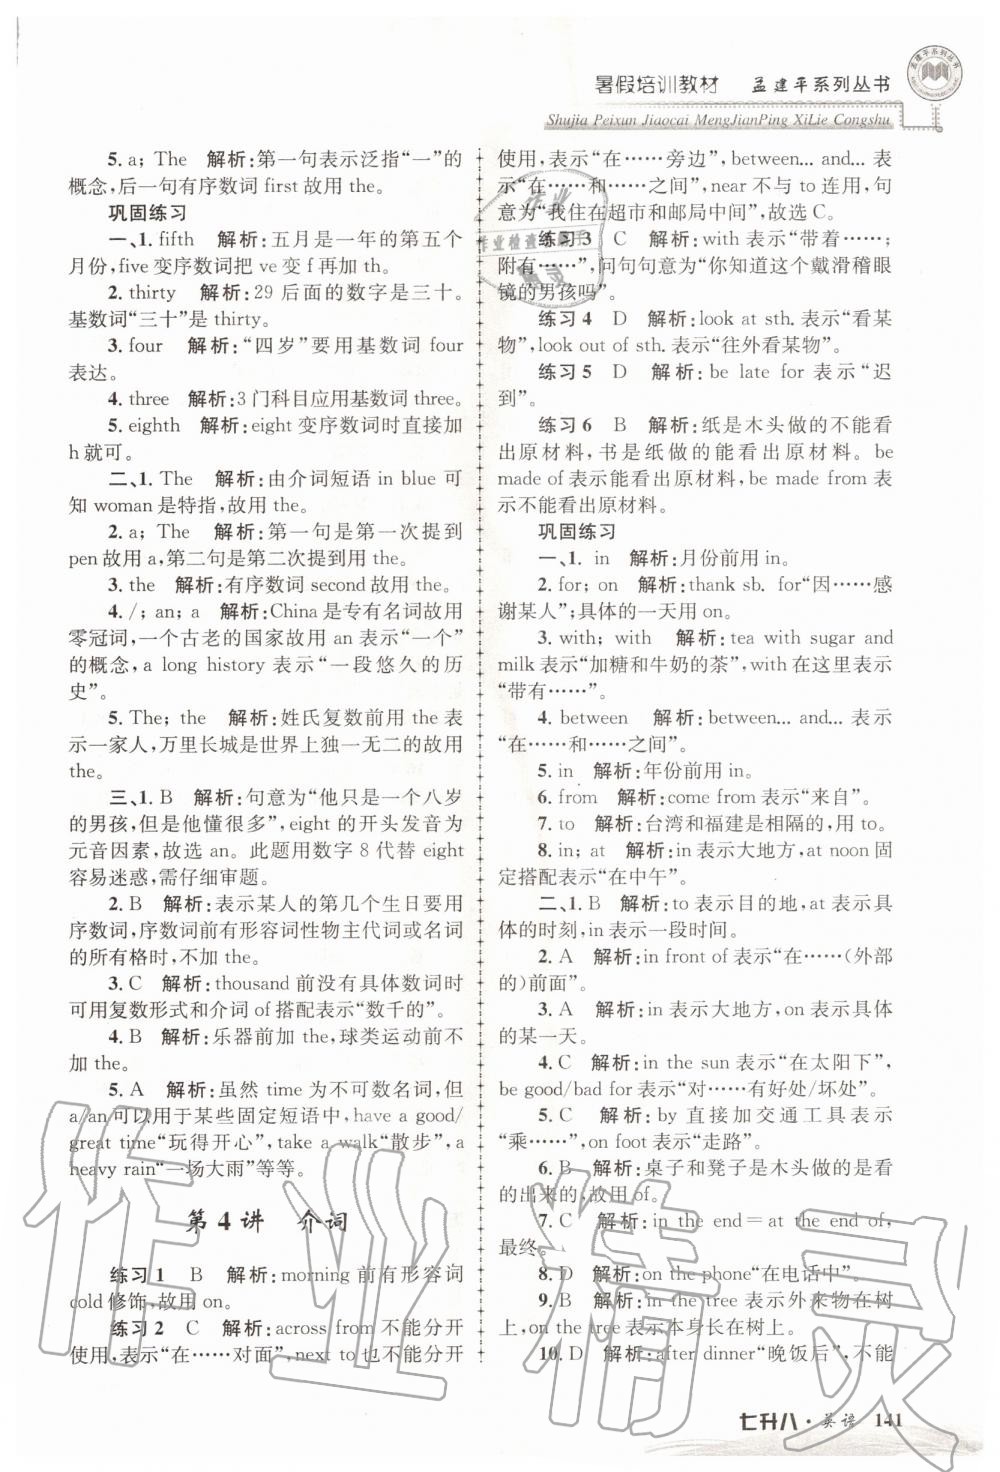 暑假培训教材 孟建平系列丛书
Shujia Peixun Jiaocai MengJianPing XiLie Congshu
5. a; The 解析:第一句表示泛指“一”的
概念,后一句有序数词 first 故用 the。
巩固练习
一、1. fifth 解析:五月是一年的第五个
月份,five 变序数词把 ve 变 f 再加 th。
2. thirty 解析:29 后面的数字是三十。
基数词“三十”是 thirty。
3. four 解析:“四岁”要用基数词 four
表达。
4. three 解析:3 门科目应用基数词 three。
5. eighth 解析:eight 变序数词时直接加
h 就可。
二、1. The 解析:由介词短语 in blue 可
知 woman 是特指,故用 the。
2. a; The 解析:第一句是第一次提到
pen 故用 a,第二句是第二次提到故用 the。
3. the 解析:有序数词 second 故用 the。
4. /; an; a 解析:China 是专有名词故用
零冠词,一个古老的国家故用 an 表示“一个”
的概念,a long history 表示“一段悠久的历
史”。
5. The; the 解析:姓氏复数前用 the 表
示一家人,万里长城是世界上独一无二的故用
the。
三、1. B 解析:句意为“他只是一个八岁
的男孩,但是他懂很多”,eight 的开头发音为
元音因素,故选 an。此题用数字 8 代替 eight
容易迷惑,需仔细审题。
2. B 解析:表示某人的第几个生日要用
序数词,序数词前有形容词性物主代词或名词
的所有格时,不加 the。
3. C 解析:thousand 前没有具体数词时
可用复数形式和介词 of 搭配表示“数千的”。
4. B 解析:乐器前加 the,球类运动前不
加 the。
5. A 解析:虽然 time 为不可数名词,但
a/an 可以用于某些固定短语中,have a good/
great time“玩得开心”,take a walk“散步”,a
heavy rain“一场大雨”等等。
第 4 讲 介词
练习 1 B 解析:morning 前有形容词
cold 修饰,故用 on。
练习 2 C 解析:across from 不能分开
使用,表示“在……对面”,next to 也不能分开
使用,表示“在……旁边”,between... and... 表
示“在……和……之间”,near 不与 to 连用,句
意为“我住在超市和邮局中间”,故选 C。
练习 3 C 解析:with 表示“带着……;
附有……”,问句句意为“你知道这个戴滑稽眼
镜的男孩吗”。
练习 4 D 解析:look at sth. 表示“看某
物”,look out of sth. 表示“往外看某物”。
练习 5 D 解析:be late for 表示“迟
到”。
练习 6 B 解析:纸是木头做的不能看
出原材料,书是纸做的能看出原材料。be
made of 表示能看出原材料,be made from 表
示不能看出原材料。
巩固练习
一、1. in 解析:月份前用 in。
2. for; on 解析:thank sb. for“因……感
谢某人”;具体的一天用 on。
3. with; with 解析:tea with sugar and
milk 表示“加糖和牛奶的茶”,with 在这里表示
“带有……”。
4. between 解析:between... and... 表示
“在……和……之间”。
5. in 解析:年份前用 in。
6. from 解析:come from 表示“来自”。
7. to 解析:台湾和福建是相隔的,用 to。
8. in; at 解析:in 表示大地方,at noon 固
定搭配表示“在中午”。
二、1. B 解析:to 表示目的地,at 表示具
体的时刻,in 表示一段时间。
2. A 解析:in front of 表示“在……(外部
的)前面”。
3. A 解析:in 表示大地方,on 表示具体
的某一天。
4. C 解析:in the sun 表示“在太阳下”,
be good/bad for 表示“对……有好处/坏处”。
5. C 解析:by 直接加交通工具表示
“乘……”,on foot 表示“走路”。
6. B 解析:桌子和凳子是木头做的是看
的出来的,故用 of。
7. C 解析:in the end＝at the end of,
最终。
8. D 解析:on the phone“在电话中”。
9. B 解析:in the tree 表示外来物在树
上,on the tree 表示本身长在树上。
10. D 解析:after dinner“晚饭后”,不能
七升八·英语 141
作业精灵